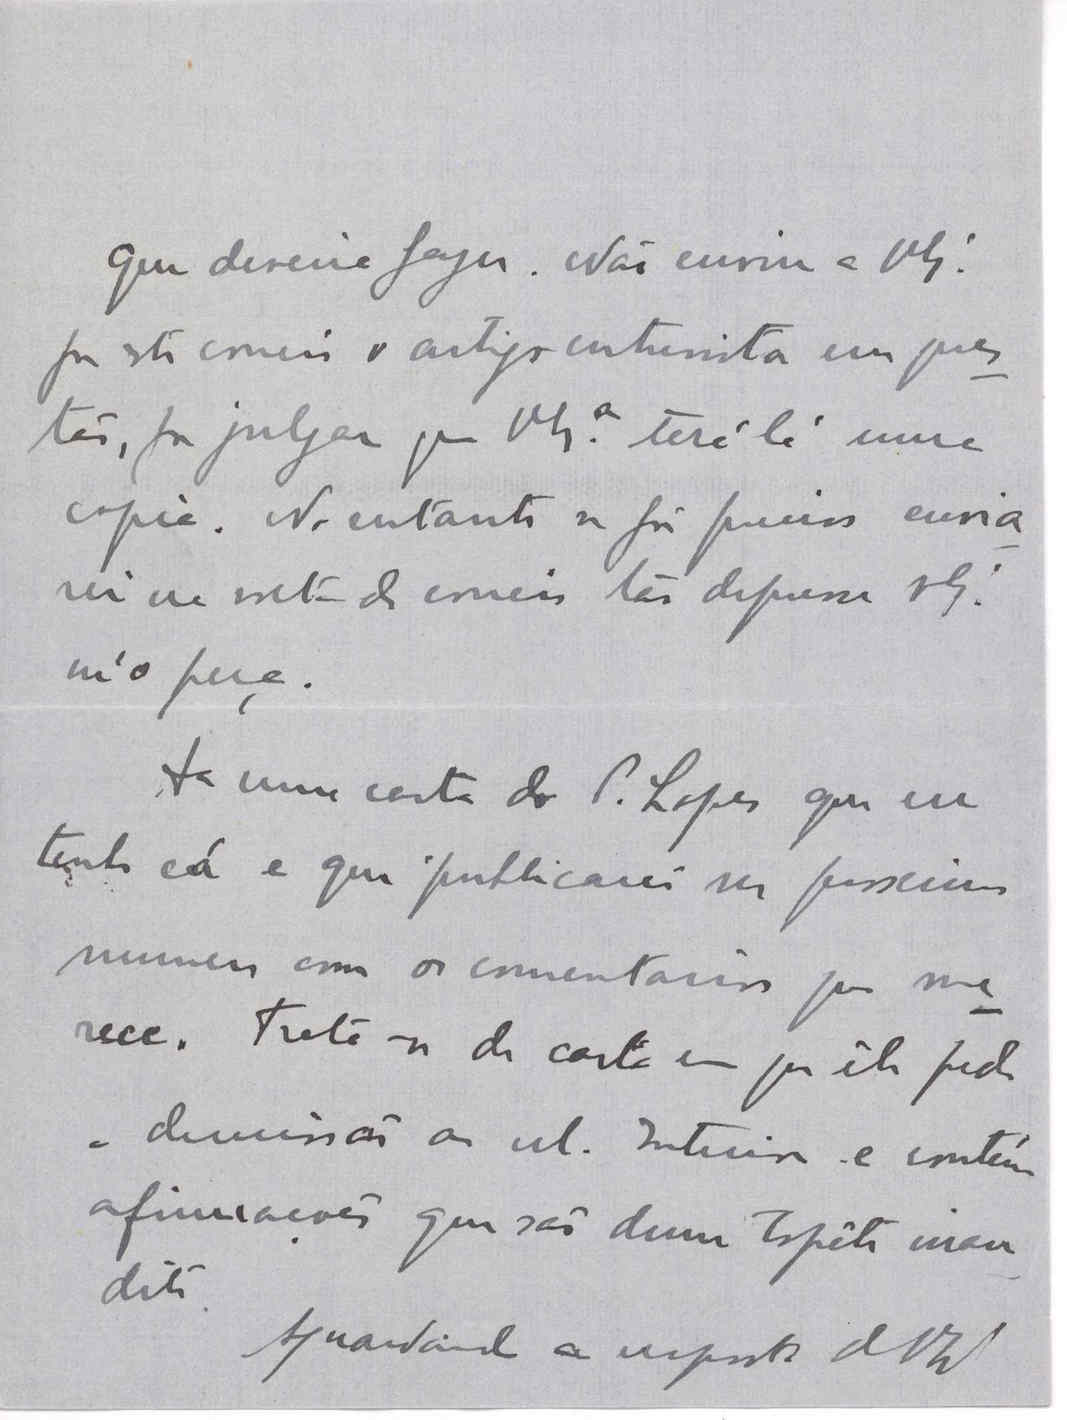 que deveria fazer. Não envio a V. Ex.ª
por este correio o artigo entrevista em ques-
tão, por julgar que V. Ex.ª terá lá uma
copia. No entanto se fôr preciso envia-
rei na volta do correio tão depressa V. Ex.ª
m'o peça.
Ha uma carta do P. Lopes que eu
tenho cá e que publicarei no proximo
numero com os comentarios que me-
rece. Trata-se da carta em que êle pede
a demissão ao M. Interior e contém
afirmações que são dum topête inau-
dito.
Aguardando a resposta de V. Ex.ª